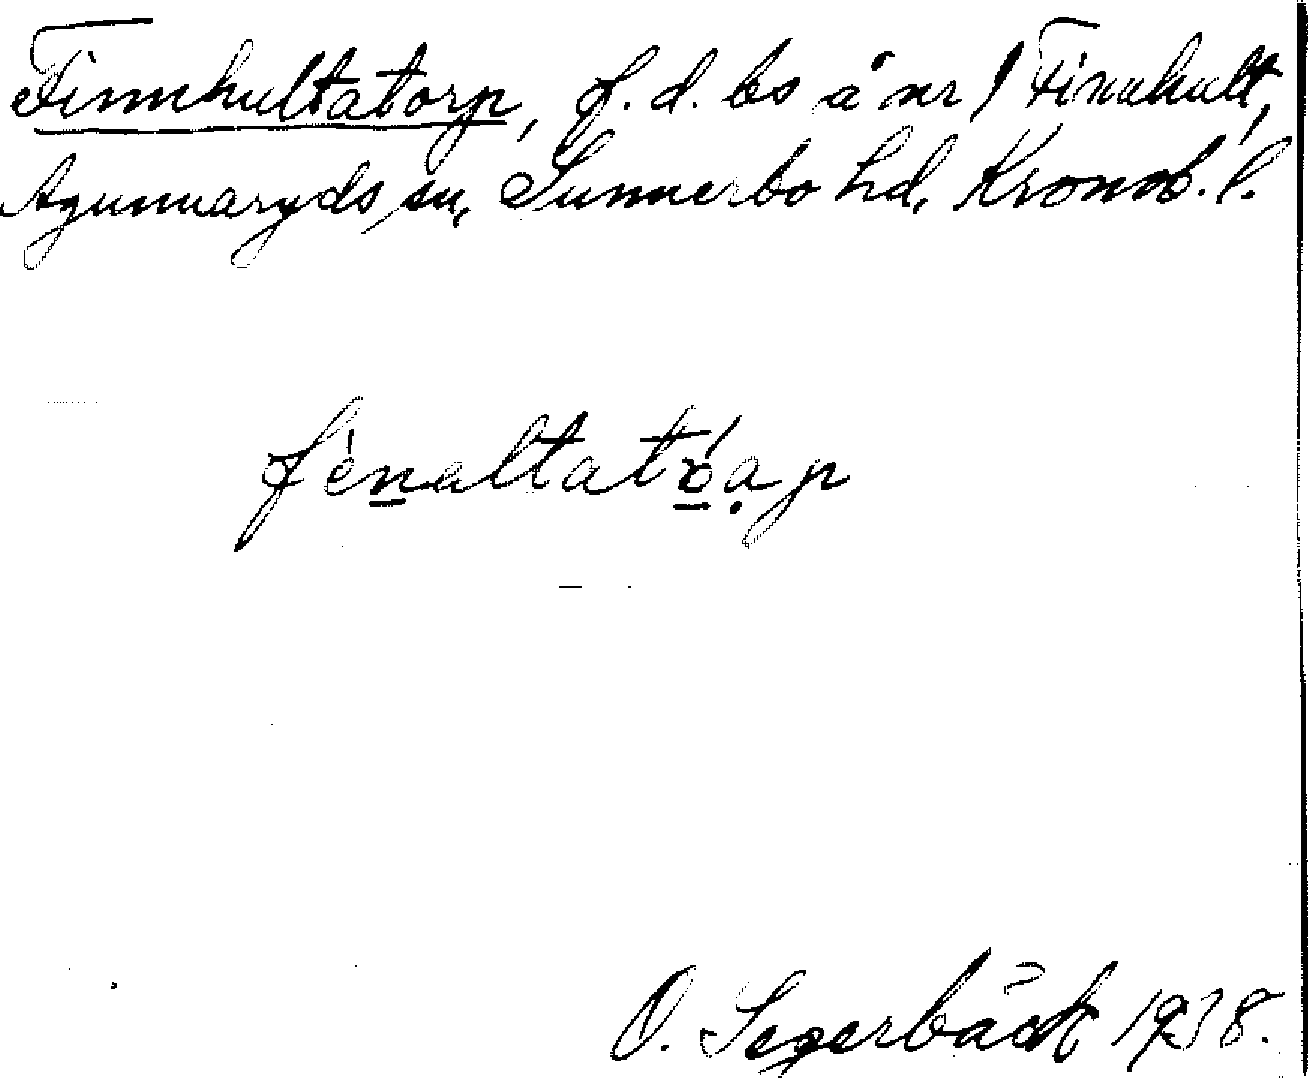 Finnhultatorp, f.d. bs å nr 1 Finnhult,
Agunnaryds sn, Sunnerbo hd, Kronob. l.
fènaltatòap
O. Segerbäck 1938.